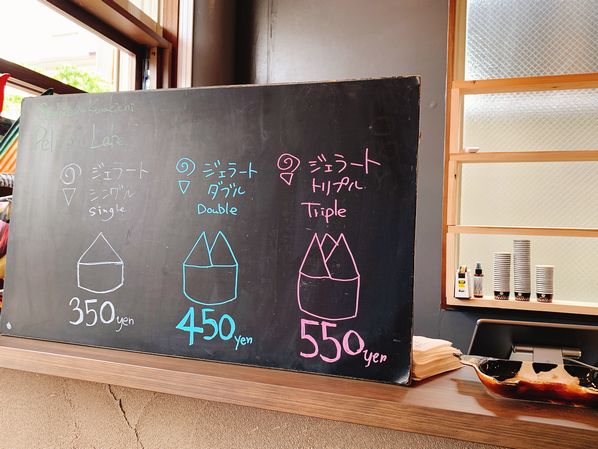 ジェラート
シングル
single
350 yen
ジェラート
ダブル
Double
450 yen
ジェラート
トリプル
Triple
550 yen